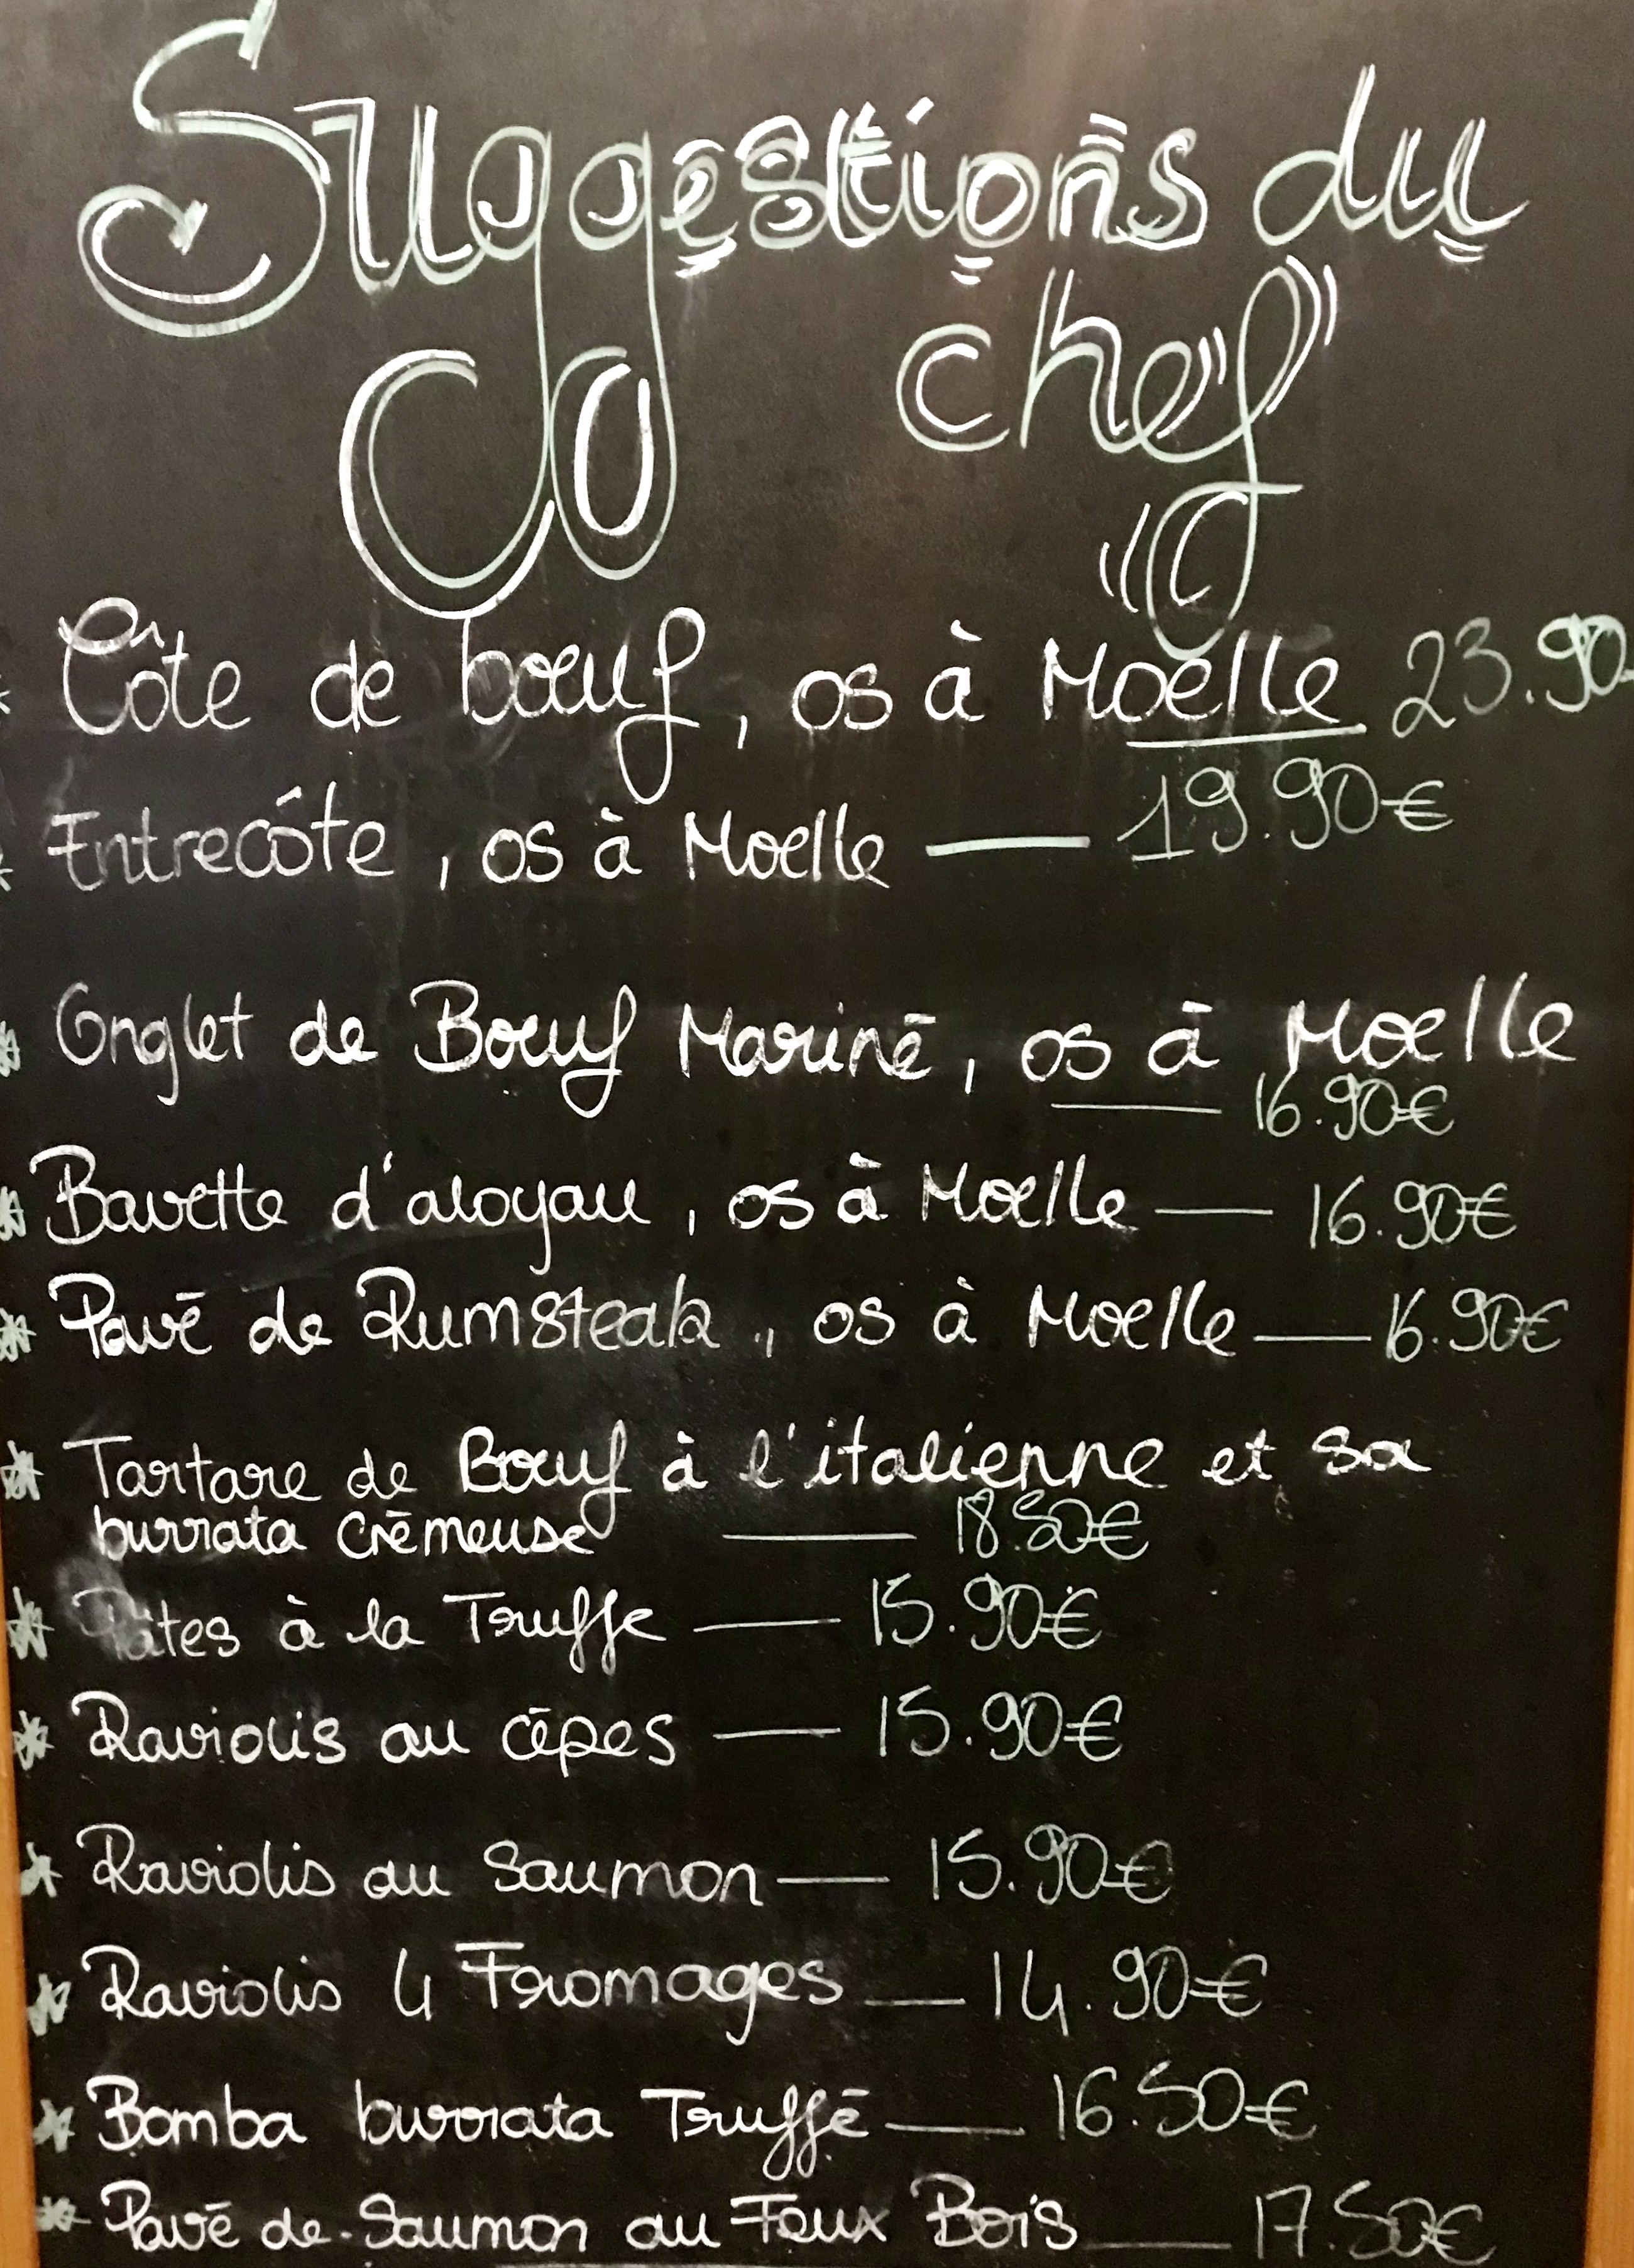 Suggestions du
chef
* Côte de bœuf, os à Moelle 23.90
* Entrecôte, os à Moelle — 19.90€
* Onglet de Bœuf Mariné, os à Moelle
— 16.90€
* Bavette d'aloyau, os à Moelle — 16.90€
* Pavé de Rumsteak, os à Moelle — 16.90€
* Tartare de Bœuf à l'italienne et sa
burrata crèmeuse — 18.50€
* Pâtes à la Truffe — 15.90€
* Raviolis au cèpes — 15.90€
* Raviolis au Saumon — 15.90€
* Raviolis 4 Fromages — 14.90€
* Bomba burrata Truffé — 16.50€
* Pavé de Saumon au Feux Bois — 17.50€